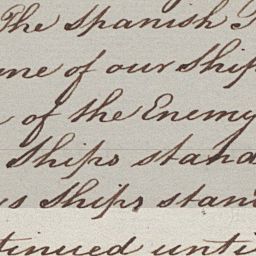 The Spanish
one of our Ships
of the Enemy
Ships stand
s Ships stan
tinued unti